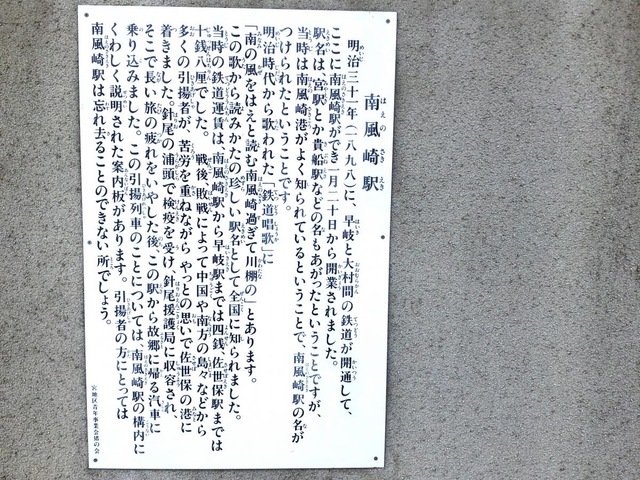 南風崎駅
明治三十一年(一八九八)に、早岐と大村間の鉄道が開通して、
ここに南風崎駅ができ一月二十日から開業されました。
駅名は、宮駅とか貴船駅などの名もあがったということですが、
当時は南風崎港がよく知られているということで、南風崎駅の名が
つけられたということです。
明治時代から歌われた「鉄道唱歌」に
「南の風をはえと読む南風崎過ぎて川棚の」とあります。
この歌から読みかたの珍しい駅名として全国に知られました。
当時の鉄道運賃は、南風崎駅から早岐駅までは四銭、佐世保駅までは
十銭八厘でした。 戦後、敗戦によって中国や南方の島々などから
多くの引揚者が、苦労を重ねながら、やっとの思いで佐世保の港に
着きました。針尾の浦頭で検疫を受け、針尾援護局に収容され、
そこで長い旅の疲れをいやした後、この駅から故郷に帰る汽車に
乗り込みました。この引揚列車のことについては、南風崎駅の構内に
くわしく説明された案内板があります。 引揚者の方にとっては
南風崎駅は忘れ去ることのできない所でしょう。
宮地区青年事業会猪の会